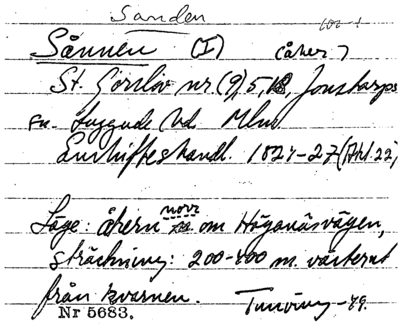 Sanden
Sånnen (I) (åker)
St. Görslöv nr (9) 5, 18, Jonstorps
sn. Luggude hd Mlm
Enskifteshandl. 1824-27 (Akt. 22)
Läge: åkern norr om Höganäsvägen,
sträckning: 200-400 m. västerut
från kvarnen. -49.
Nr 5683.